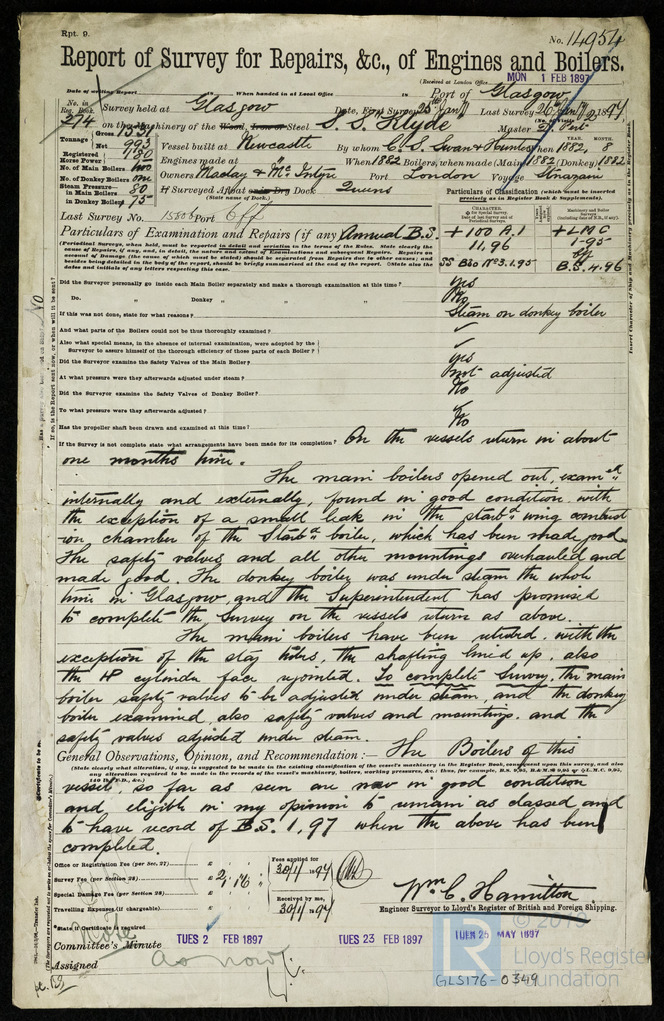 Rpt. 9.
No. 14954
Report of Survey for Repairs, &c., of Engines and Boilers.
(Received at London Office MON 1 FEB 1897
Date of writing Report When handed in at Local Office Port of Glasgow
No. in Reg. Book. 274 Survey held at Glasgow Date, First Survey 25 Jany Last Survey 26 Jany 1897
on the Machinery of the Wood, Iron or Steel S.S. Klyde Master
Tonnage Gross
Net 993
Vessel built at Newcastle By whom C. S. Swan & Hunter When 1882, 8
YEAR. MONTH.
Registered Horse Power
Engines made at " When 1882 Boilers, when made (Main) 1882 (Donkey) 1882
No. of Main Boilers two
Owners Maclay & McIntyre Port London Voyage
No. of Donkey Boilers one
Steam Pressure in Main Boilers 80
in Donkey Boilers 75
If Surveyed Afloat or in Dry Dock Queens
(State name of Dock.)
Particulars of Classification (which must be inserted precisely as in Register Book & Supplements).
Last Survey No. 15808 Port
Particulars of Examination and Repairs (if any) Annual B.S.
+ 100 A.1
11,96
SS No 3.1.95
+ LMC
1-95
B.S. 4.96
(Periodical Surveys, when held, must be reported in detail and seriatim in the terms of the Rules. State clearly the
cause of Repairs, if any, and, in detail, the nature and extent of Examinations and subsequent Repairs. Repairs on
account of Damage (the cause of which must be stated) should be separated from Repairs due to other causes; and
besides being detailed in the body of the report, should be briefly summarised at the end of the report. State also the
dates and initials of any letters respecting this case.
Did the Surveyor personally go inside each Main Boiler separately and make a thorough examination at this time? yes
Do. " Donkey " " " No
If this was not done, state for what reasons? Steam on donkey boiler
And what parts of the Boilers could not be thoroughly examined? ✓
Also what special means, in the absence of internal examination, were adopted by the
Surveyor to assure himself of the thorough efficiency of those parts of each Boiler? ✓
Did the Surveyor examine the Safety Valves of the Main Boiler? yes
At what pressure were they afterwards adjusted under steam? not adjusted
Did the Surveyor examine the Safety Valves of Donkey Boiler? No
To what pressure were they afterwards adjusted? ✓
Has the propeller shaft been drawn and examined at this time? No
If the Survey is not complete state what arrangements have been made for its completion? On the vessels return in about
one months time.
The main boilers opened out, examed
internally and externally, found in good condition with
the exception of a small leak in the starbd wing combust
ion chamber of the Starbd boiler, which has been made good.
The safety valves and all other mountings overhauled and
made good. The donkey boiler was under steam the whole
time in Glasgow, and the Superintendent has promised
to complete the Survey on the vessels return as above.
The main boilers have been retubed, with the
exception of the stay tubes, the shafting lined up, also
the HP cylinder face rejointed. To complete Survey, the main
boiler safety valves to be adjusted under steam, and the donkey
boiler examined, also safety valves and mountings, and the
safety valves adjusted under steam.
General Observations, Opinion, and Recommendation:— The Boilers of this
(State clearly what alteration, if any, is suggested to be made in the existing classification of the vessel's machinery in the Register Book, consequent upon this survey, and also
any alteration required to be made in the records of the vessel's machinery, boilers, working pressures, &c.
vessel, so far as seen are now in good condition
and eligible in my opinion to remain as classed and
to have record of B.S. 1,97 when the above has been
completed.
Office or Registration Fee (per Sec. 27) £
Survey Fee (per Section 28) £ 2 : 16 "
Special Damage Fee (per Section 28) £
Travelling Expenses (if chargeable) £
Fees applied for 30/1/1897
Received by me, 30/1/1897
Wm C. Hamilton
Engineer Surveyor to Lloyd's Register of British and Foreign Shipping.
State if Certificate is required
Committee's Minute TUES 2 FEB 1897 TUES 23 FEB 1897 TUES 25 MAY 1897
Assigned as now
© 2019
LR
Lloyd's Register
Foundation
GLS176-0349